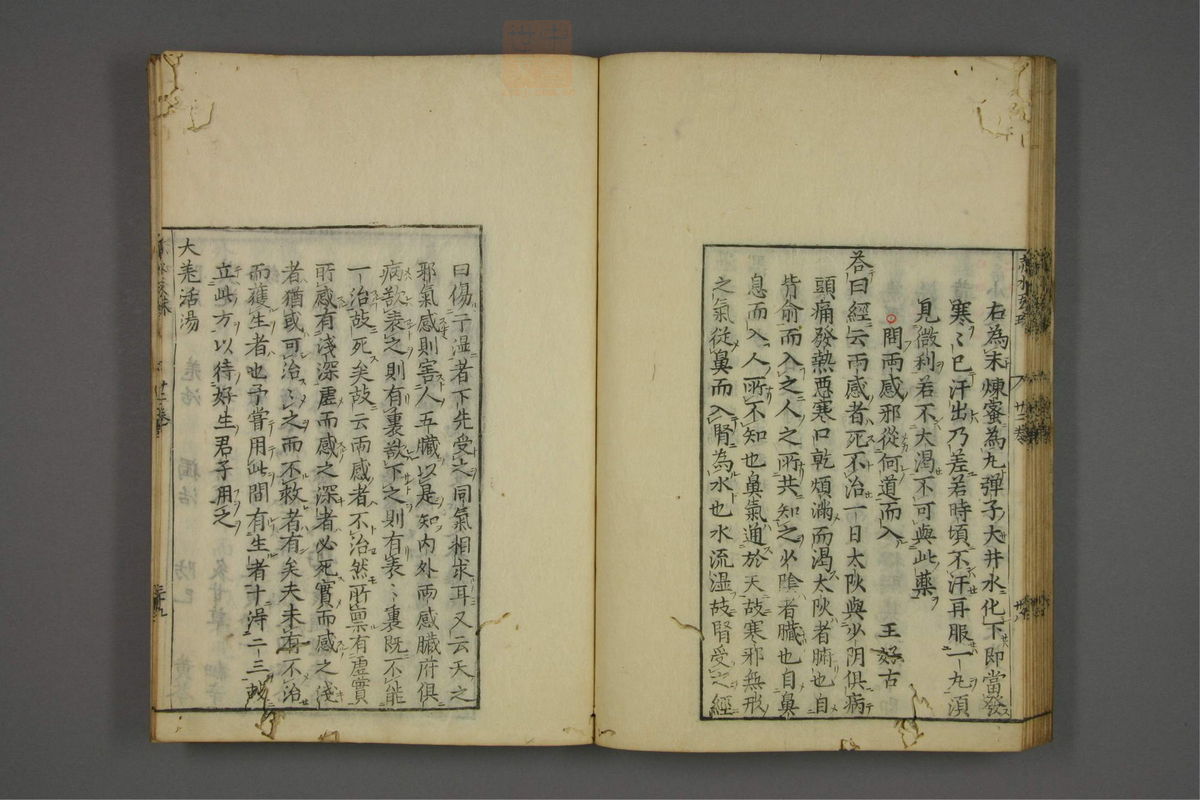 右為末煉蜜為丸彈子大井水化下即當發
寒〻已汗出乃差若時頃不汗再服一丸須
見微利若不大渇不可與此藥
問兩感邪從何道而入　王好古
荅曰經云兩感者死不治一日太阦與少阴俱病
頭痛發熱惡寒口乾煩滿而渴太阦者腑也自
背俞而入之人之所共知之少陰者臟也自鼻
息而入人所不知也鼻氣通於天故寒邪無形
之氣從鼻而入腎為水也水流湿故腎受之經
曰傷于湿者下先受之同氣相求耳又云天之
邪氣感則害人五臟以是知内外兩感臟府俱
病欲表之則有裏欲下之則有表〻裏既不能
一治故死矣故云兩感者不治然所禀有虚實
所感有淺深虚而感之深者必死實而感之淺
者猶或可治〻之而不救者有矣夫未有不治
而獲生者也予嘗用此間有生者十得二三故
立此方以待好生君子用之
大羗活湯